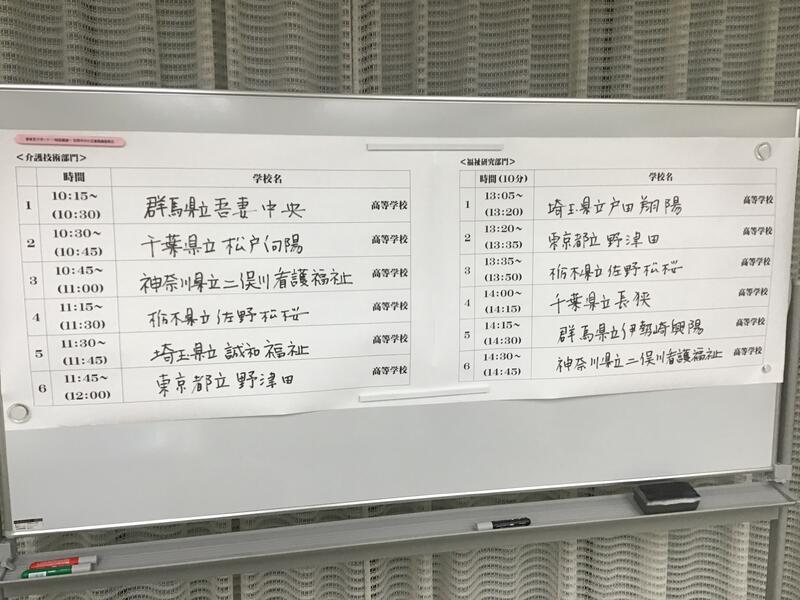 <介護技術部門>
時間 学校名
1 10:15~(10:30) 群馬県立吾妻中央 高等学校
2 10:30~(10:45) 千葉県立松戸向陽 高等学校
3 10:45~(11:00) 神奈川県立二俣川看護福祉 高等学校
4 11:15~(11:30) 栃木県立佐野松桜 高等学校
5 11:30~(11:45) 埼玉県立誠和福祉 高等学校
6 11:45~(12:00) 東京都立野津田 高等学校
<福祉研究部門>
時間(10分) 学校名
1 13:05~(13:20) 埼玉県立戸田翔陽 高等学校
2 13:20~(13:35) 東京都立野津田 高等学校
3 13:35~(13:50) 栃木県立佐野松桜 高等学校
4 14:00~(14:15) 千葉県立長狭 高等学校
5 14:15~(14:30) 群馬県立伊勢崎興陽 高等学校
6 14:30~(14:45) 神奈川県立二俣川看護福祉 高等学校